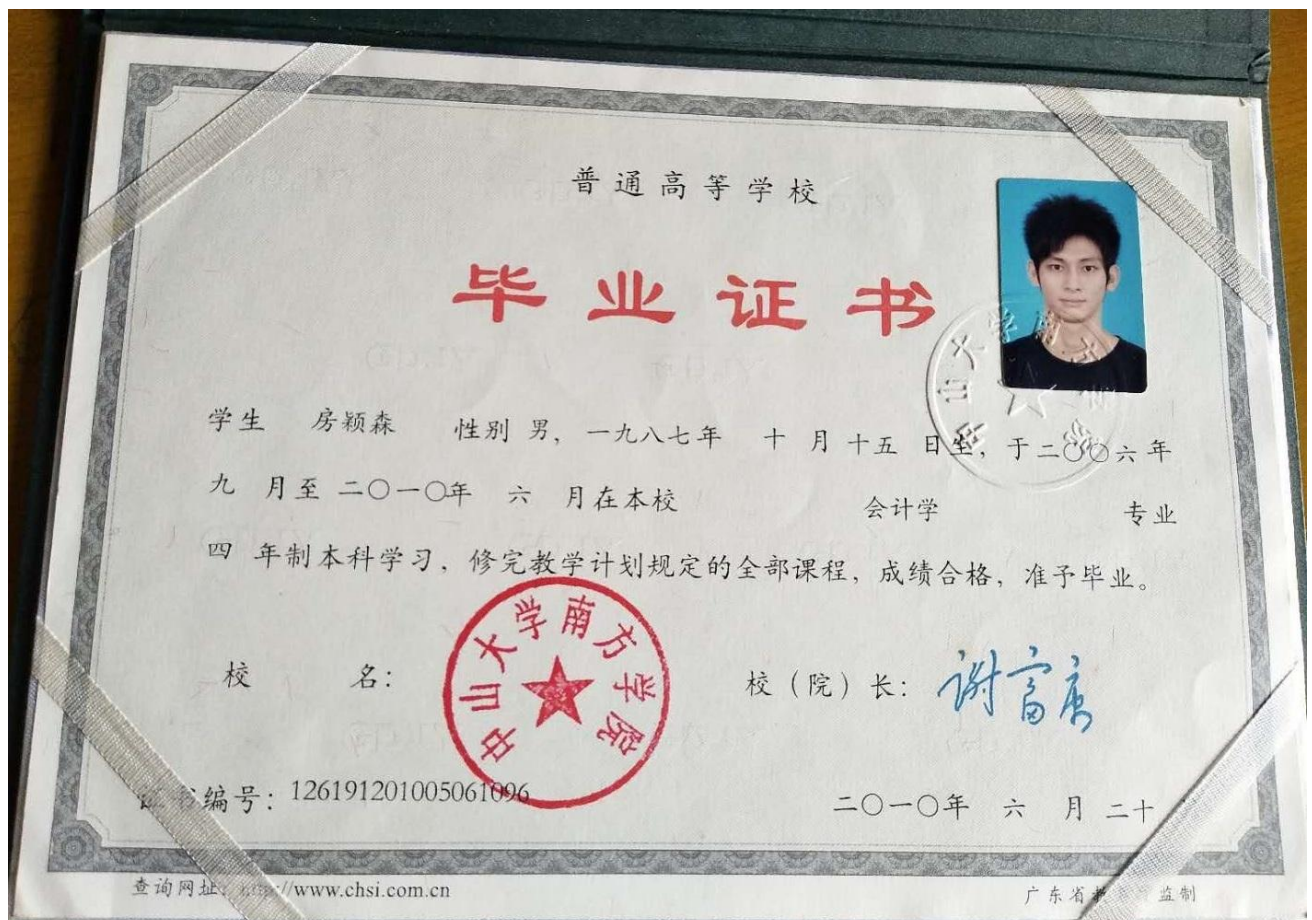 普通高等学校
毕业证书
学生 房颖森 性别 男，一九八七年 十 月 十五 日生，于二〇〇六年
九 月至 二〇一〇年 六 月在本校 会计学 专业
四 年制本科学习，修完教学计划规定的全部课程，成绩合格，准予毕业。
中山大学南方学院
校 名： 校（院）长： 谢富康
证书编号：126191201005061096 二〇一〇年 六 月 二十
查询网址：http://www.chsi.com.cn 广东省教 监制